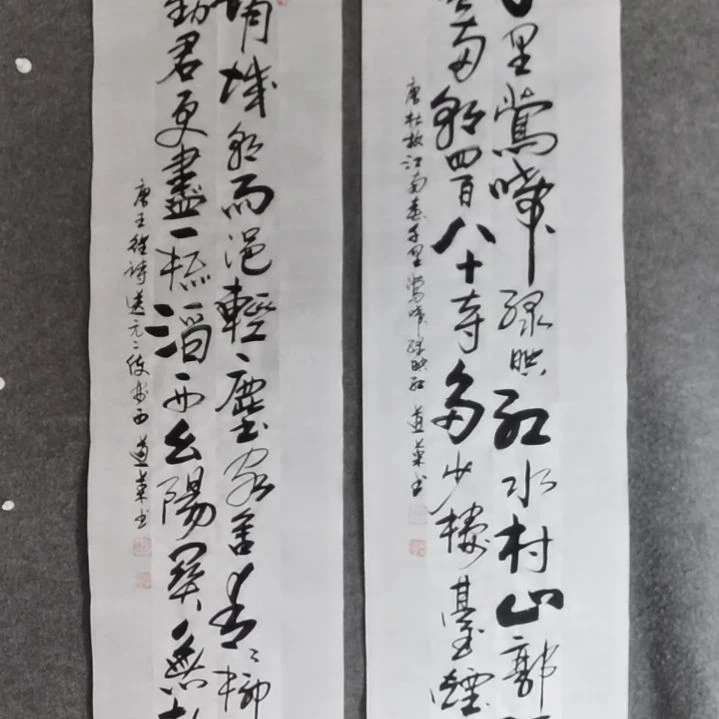 里鶯啼緑映红水村山郭
南朝四百八十寺多少樓臺煙
唐杜牧江南春千里鶯啼緑映红 书
渭城朝雨浥輕塵客舍青〻柳
勸君更盡一杯酒西出陽關無故
唐王維詩送元二使安西 书